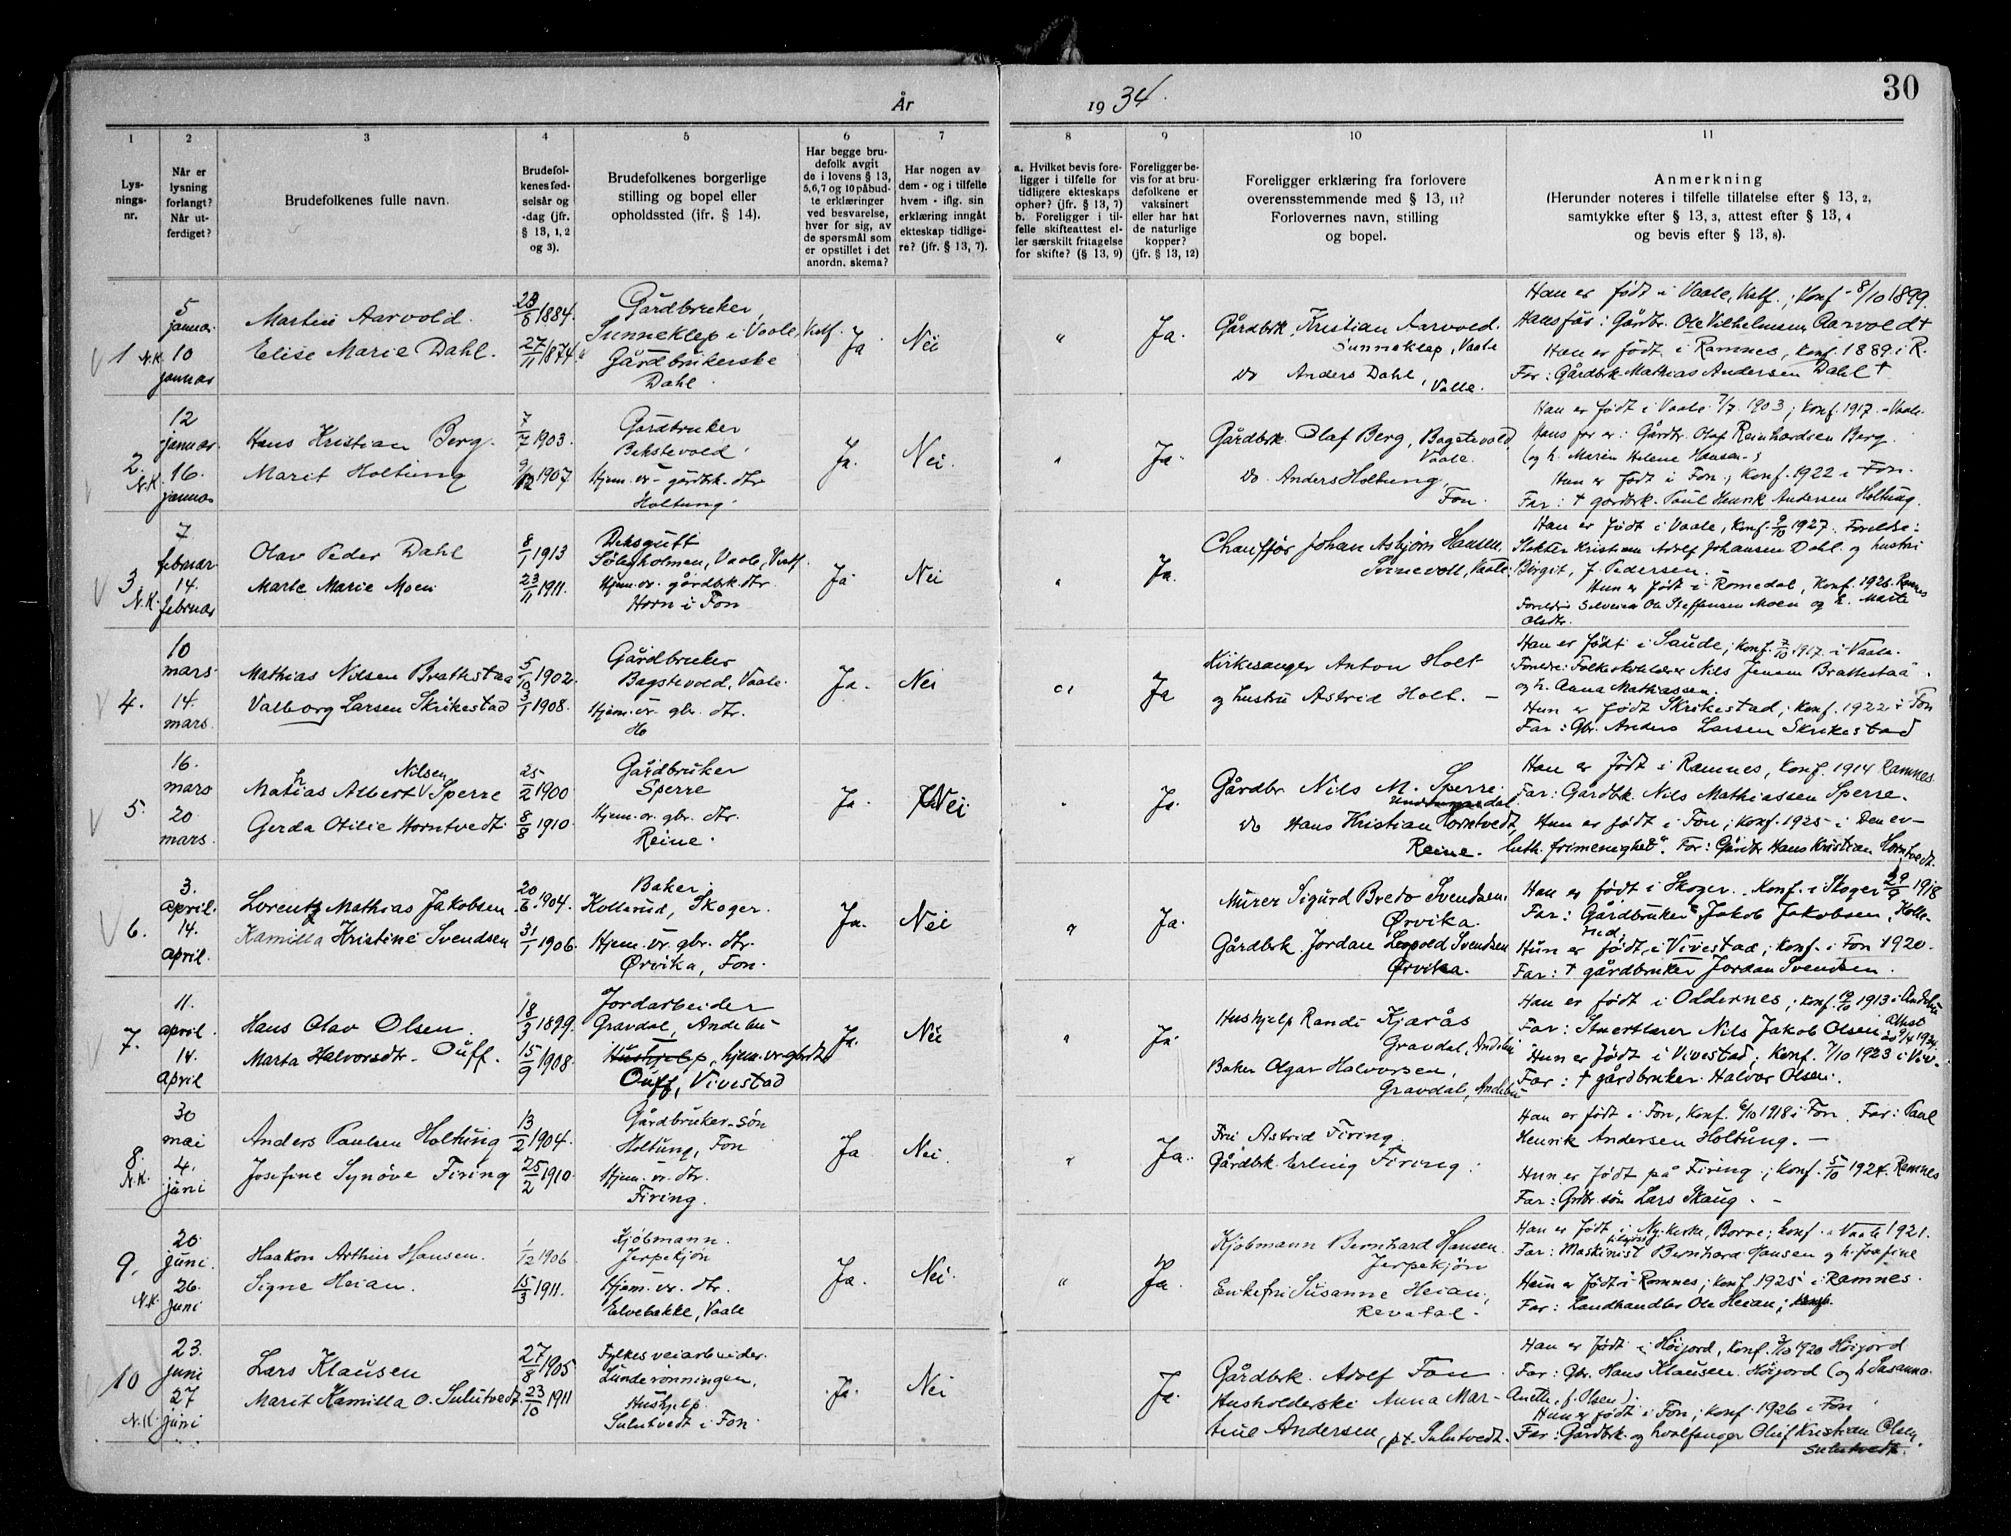 År 1934.
30
1 2 3 4 5 6 7 8 9 10 11
Lysningsnr.
Når er lysning forlangt? Når utferdiget?
Brudefolkenes fulle navn.
Brudefolkenes fødselsår og -dag (jfr. § 13, 1, 2 og 3).
Brudefolkenes borgerlige stilling og bopel eller opholdssted (jfr. § 14).
Har begge brudefolk avgit de i lovens § 13, 5, 6, 7 og 10 påbudte erklæringer ved besvarelse, hver for sig, av de spørsmål som er opstillet i det anordn. skema?
Har nogen av dem - og i tilfelle hvem - iflg. sin erklæring inngåt ekteskap tidligere? (jfr. § 13, 7).
a. Hvilket bevis foreligger i tilfelle for tidligere ekteskaps ophør? (jfr. § 13, 7) b. Foreligger i tilfelle skifteattest eller særskilt fritagelse for skifte? (§ 13, 9)
Foreligger bevis for at brudefolkene er vaksinert eller har hat de naturlige kopper? (jfr. § 13, 12)
Foreligger erklæring fra forlovere overensstemmende med § 13, 11? Forlovernes navn, stilling og bopel.
Anmerkning
(Herunder noteres i tilfelle tillatelse efter § 13, 2, samtykke efter § 13, 3, attest efter § 13, 4 og bevis efter § 13, 8).
1 N.K.
5 januar
10 januar
Martin Aarvold.
Elise Marie Dahl.
1884.
27/11 1874
Gårdbruker,
Sunneklep i Vaale, Vestf.
Gårdbrukerske
Dahl.
Ja
Nei
"
Ja.
Gårdbrk. Kristian Aarvold.
Sunneklep, Vaale
Do Anders Dahl, Valle.
Han er født i Vaale, Vestf.; Konf. 8/10 1899.
Hans far: Gårdbr. Ole Vilhelmsen Aarvold †
Hun er født i Ramnes, konf. 1889 i R.
Far: Gårdbrk Mathias Andersen Dahl †
2. N.K.
12 januar.
16. januar
Hans Kristian Berg.
Marit Holtung
7/7 1903.
9/12 1907
Gårdbruker
Bekstevold.
Hjem.vr. gårdbrk. dtr.
Holtung.
Ja.
Nei.
"
Ja.
Gårdbrk. Olaf Berg, Bagstevold,
Vaale.
Do. Anders Holtung,
Fon.
Han er født i Vaale 7/7 1903; Konf. 1917. Vaale.
Hans far er: Gårdbr. Olaf Reinhardsen Berg.
(og h. Maren Helene Hansen.)
Hun er født i Fon; Konf. 1922 i Fon.
Far: † gårdbrk. Paul Henrik Andersen Holtung.
3. N.K.
7 februar
14. februar
Olav Peder Dahl
Marie Moen
8/1 1913
23/11 1911.
Deksgutt
Solegholmen, Vaale, Vestf.
Hjem.vr. gårdbrk. dtr.
Horn i Fon
Ja
Nei
"
Ja.
Chauffør Johan Asbjørn Hansen,
Svinevoll, Vaale.
Han er født i Vaale, Konf. 9/10 1927. Foreldre:
Slakter Kristian Adolf Johansen Dahl og hustru
Birgit, f. Pedersen.
Hun er født i Romedal, Konf. 1926. Ramnes
Ole Steffensen Moen og h. Marte
Olsdtr.
4.
10 mars.
14. mars.
Mathias Nilsen Brattestaa
Valborg Larsen Skrikestad
5/10 1902.
3/1 1908.
Gårdbruker
Bagstevold, Vaale.
Hjem.vr. gbr. dtr.
Ho
Ja.
Nei
Ja
Kirkesanger Anton Holt
og hustru Astrid Holt. –
Han er født i Saude; konf. 7/10 1917. i Vaale.
Foreldre: Folkeskolelærer Nils Jensen Brattestaa
og h. Anna Mathiassen.
Hun er født Skrikestad; konf. 1922 i Fon
Far: Gbr. Anders Larsen Skrikestad
5.
16. mars
20 mars.
Mathias Albert Nilsen Sperre
Gerda Otilie Horntvedt
25/2 1900
8/8 1910.
Gårdbruker
Sperre
Hjem.vr. gbr. dtr.
Reine.
Ja.
Nei
Ja.
Gårdbr Nils M. Sperre.
Do Hans Kristian Horntvedt,
Reine.
Han er født i Ramnes, Konf. 1914 Ramnes
Far: Gårdbk. Nils Mathiassen Sperre.
Hun er født i Fon; konf. 1925 i Den ev-
luth. frimenighet". Far: Gårdbr Hans Kristian Horntvedt.
6.
3. april.
14. april.
Lorentz Mathias Jakobsen
Kamilla Kristine Svendsen
20/6 1904.
31/1 1906.
Baker.
Kollerud, Skoger.
Hjem.vr. gbr. dtr.
Ørvika, Fon.
Ja.
Nei
"
Ja.
Murer Sigurd Bredo Svendsen.
Ørvika.
Gårdbrk. Jordan Leopold Svendsen
Ørvika.
Han er født i Skoger. Konf. i Skoger 29/9 1918
Far: Gårdbruker Jakob Jakobsen, Kolle-
rud,
Hun er født i Vivestad; konf. i Fon 1920.
Far: † gårdbruker Jordan Svendsen.
7.
11. april.
14. april
Hans Olav Olsen.
Marta Halvorsdtr. Ouff.
1899.
15/9 1908.
Jordarbeider
Gravdal, Andebu
Hushjelp, hjem.vr. gbr. dtr
Ouff, Vivestad
Ja.
Nei
"
Ja.
Hushjelp Randi Kjærås
Gravdal, Andebu
Baker Olgar Halvorsen,
Gravdal, Andebu
Han er født i Oddernes; konf. 1913 i Andebu
Far: Nils Jakob Olsen
Hun er født i Vivestad; Konf. 7/10 1923 i Viv.
Far: † gårdbruker Halvor Olsen.
8. N.K.
30 mai
4. juni
Anders Paulsen Holtung
Josefine Synøve Firing
13/2 1904.
25/2 1910.
Gårdbruker-søn
Holtung, Fon
Hjem.vr. dtr.
Firing.
Ja
Nei.
"
Ja.
Fru Astrid Firing.
Gårdbrk. Erling Firing.
Han er født i Fon, Konf. 6/10 1918 i Fon. Far: Paul
Henrik Andersen Holtung. –
Hun er født på Firing; Konf. 5/10 1924. Ramnes
Far: Grdbr. søn Lars Skaug. –
9. N.K.
20. juni.
26. juni
Haakon Arthur Hansen.
Signe Heian.
1/12 1906
15/3 1911.
Kjøbmann.
Jerpekjøn
Hjem.vr. dtr.
Elvebakke, Vaale
Ja.
Nei.
"
Ja.
Kjøbmann Bernhard Hansen.
Jerpekjøn
Enkefru Susanne Heian,
Revetal.
Han er født i Nykirke, Borre; konf. i Vaale 1921.
Far: Maskinist Bernhard Hansen og h. Josefine
Hun er født i Ramnes; konf. 1925 i Ramnes.
Far: Landhandler Ole Heian;
10 N.K.
23. juni
27 juni
Lars Klausen
Marit Kamilla O. Sulutvedt.
27/8 1905
23/10 1911
Fylkesveiarbeider.
Lunderønningen,
Hushjelp
Sulutvedt i Fon.
Ja.
Nei
Ja.
Gårdbrk. Adolf Fon
Husholderske Anna Mar-
tine Andersen, p.t. Sulutvedt.
Han er født i Høijord, Konf. 3/10 1920 Høijord
Far: Gbr. Hans Klausen Høijord (og h. Susanna
Anette, f. Olsen).
Hun er født i Fon; konf. 1926 i Fon.
Far: Gårdbrk. og hvalfanger Oluf Kristian Olsen,
Sulutvedt.